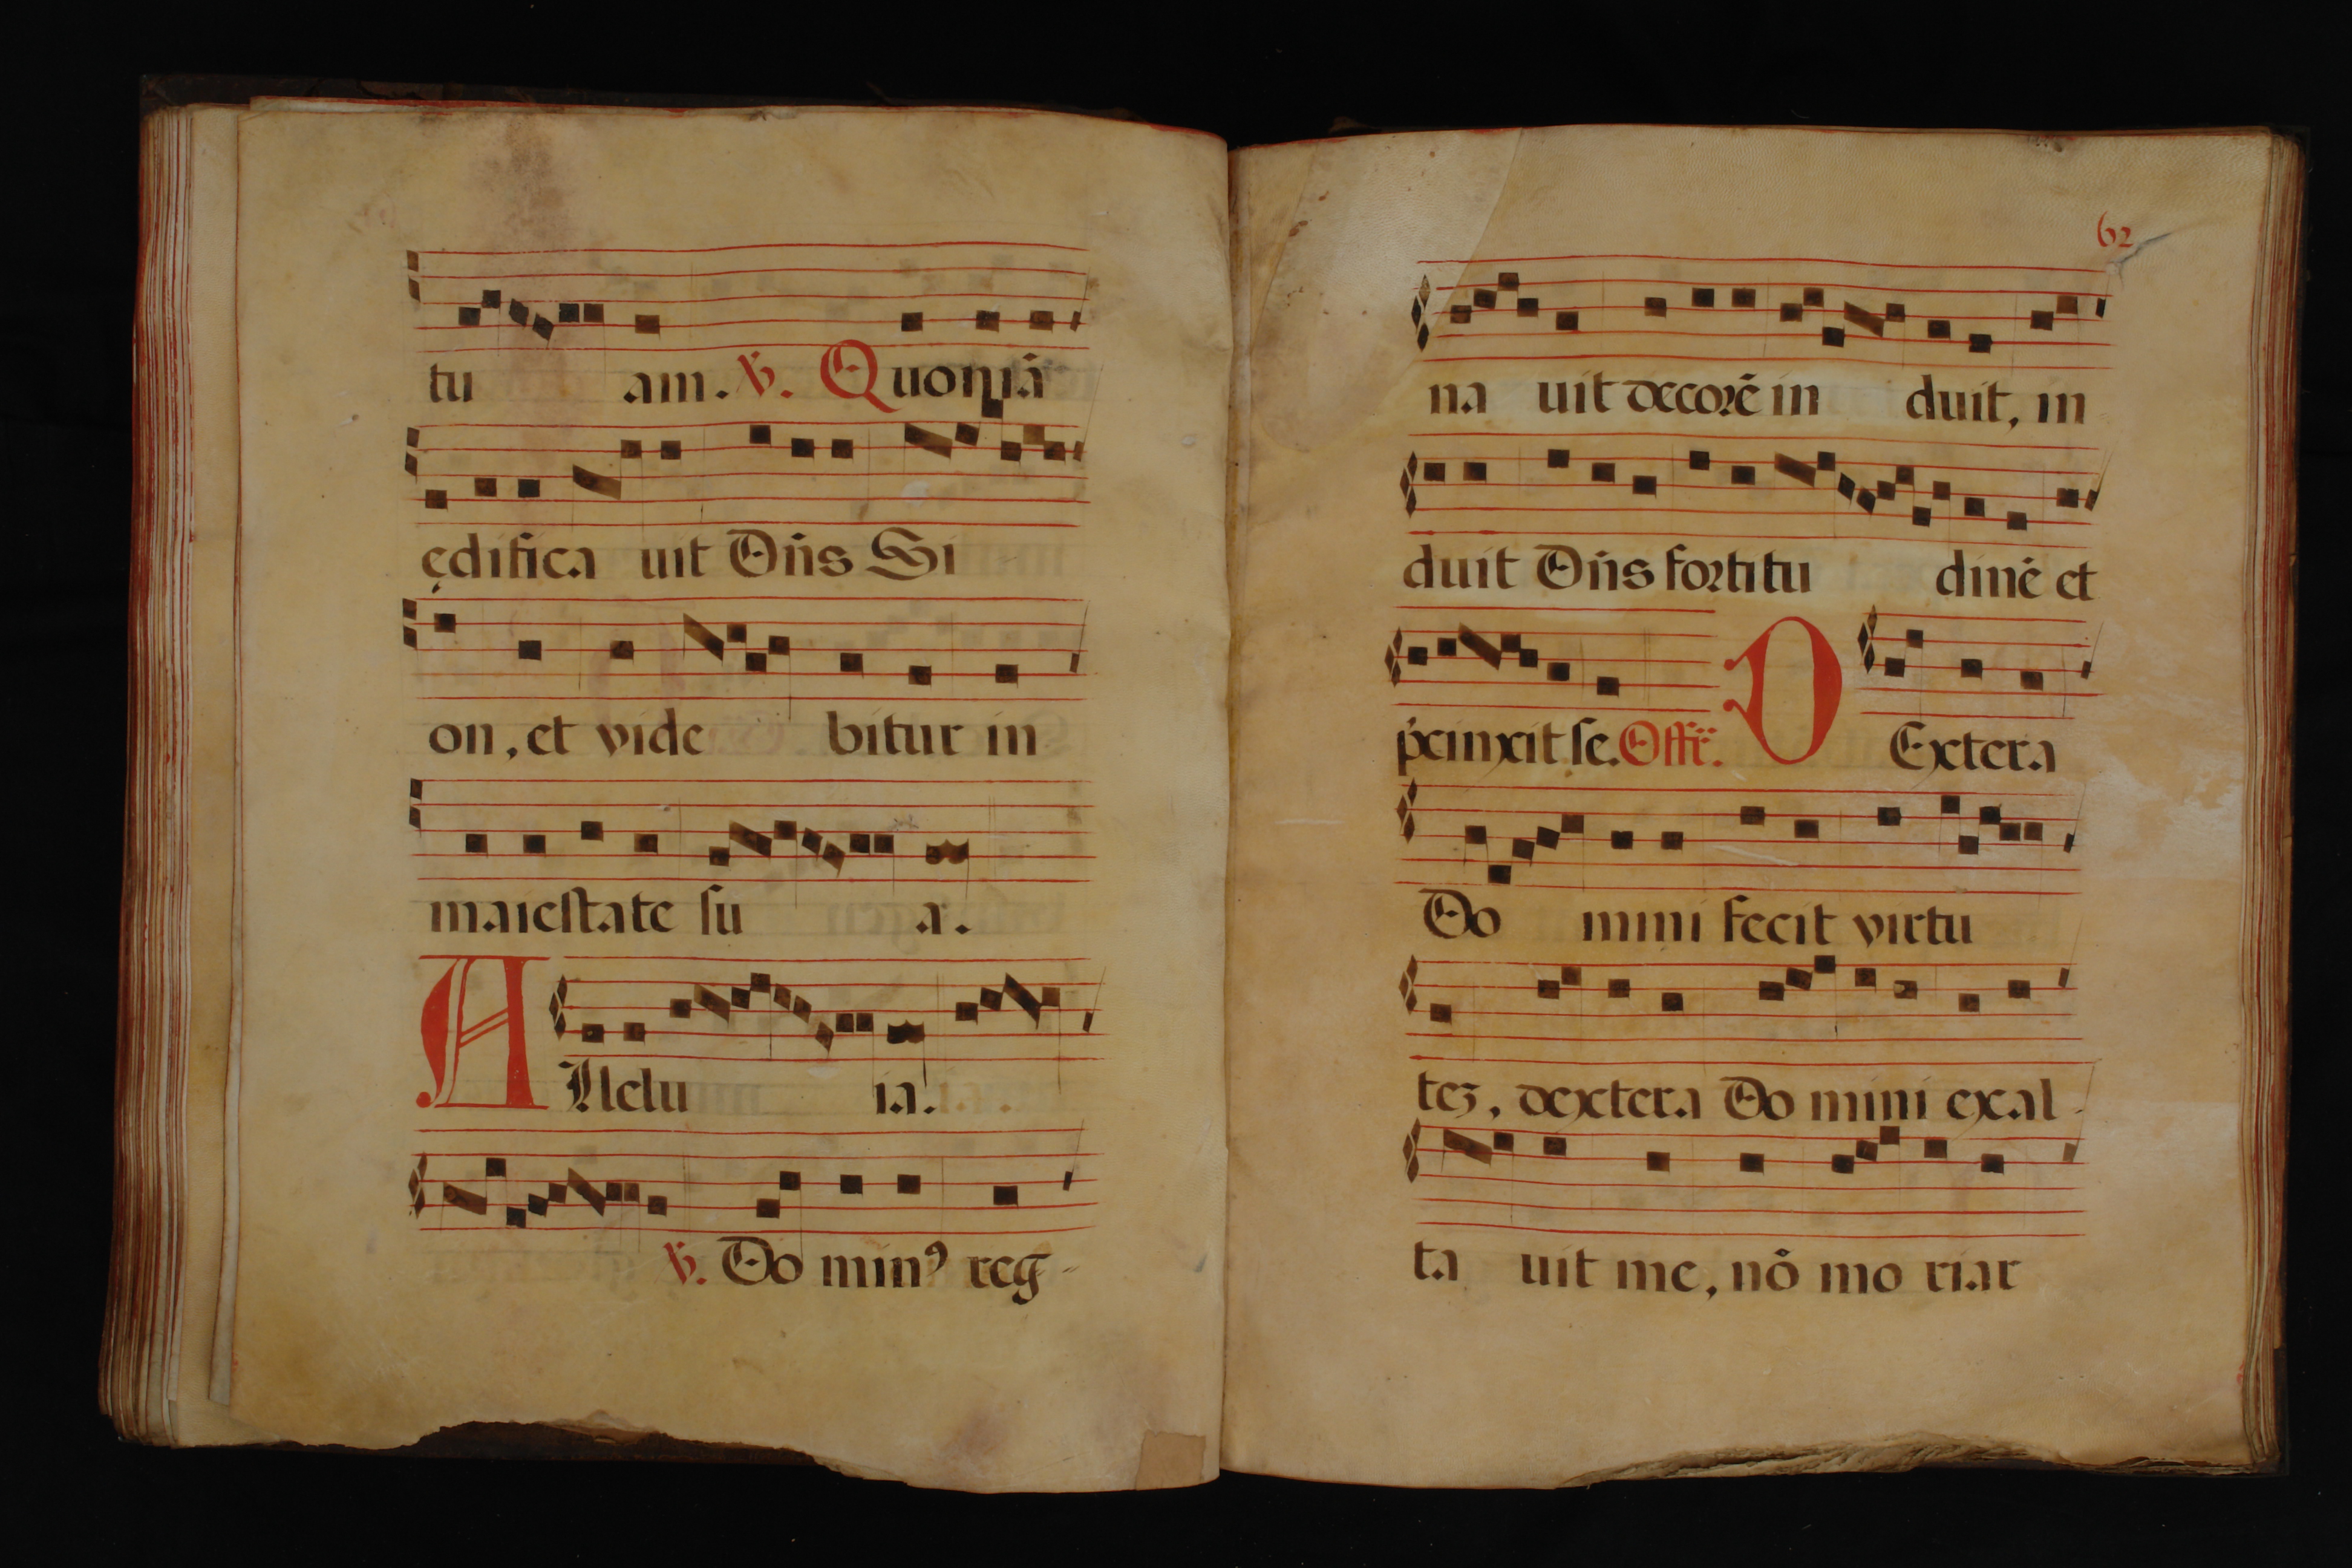 tu am. ℣. Quoniā
ędifica uit Dñs Si
on, et vide bitur in
maiestate su a.
A Llelu ia.
℣. Do minꝰ reg-
62
na uit decorē in duit, in
duit Dñs fortitu dinē et
p̄cinxit se. Offr̃. D Extera
Do mini fecit virtu
teʒ, dextera Do mini exal-
ta uit me, nō mo riar